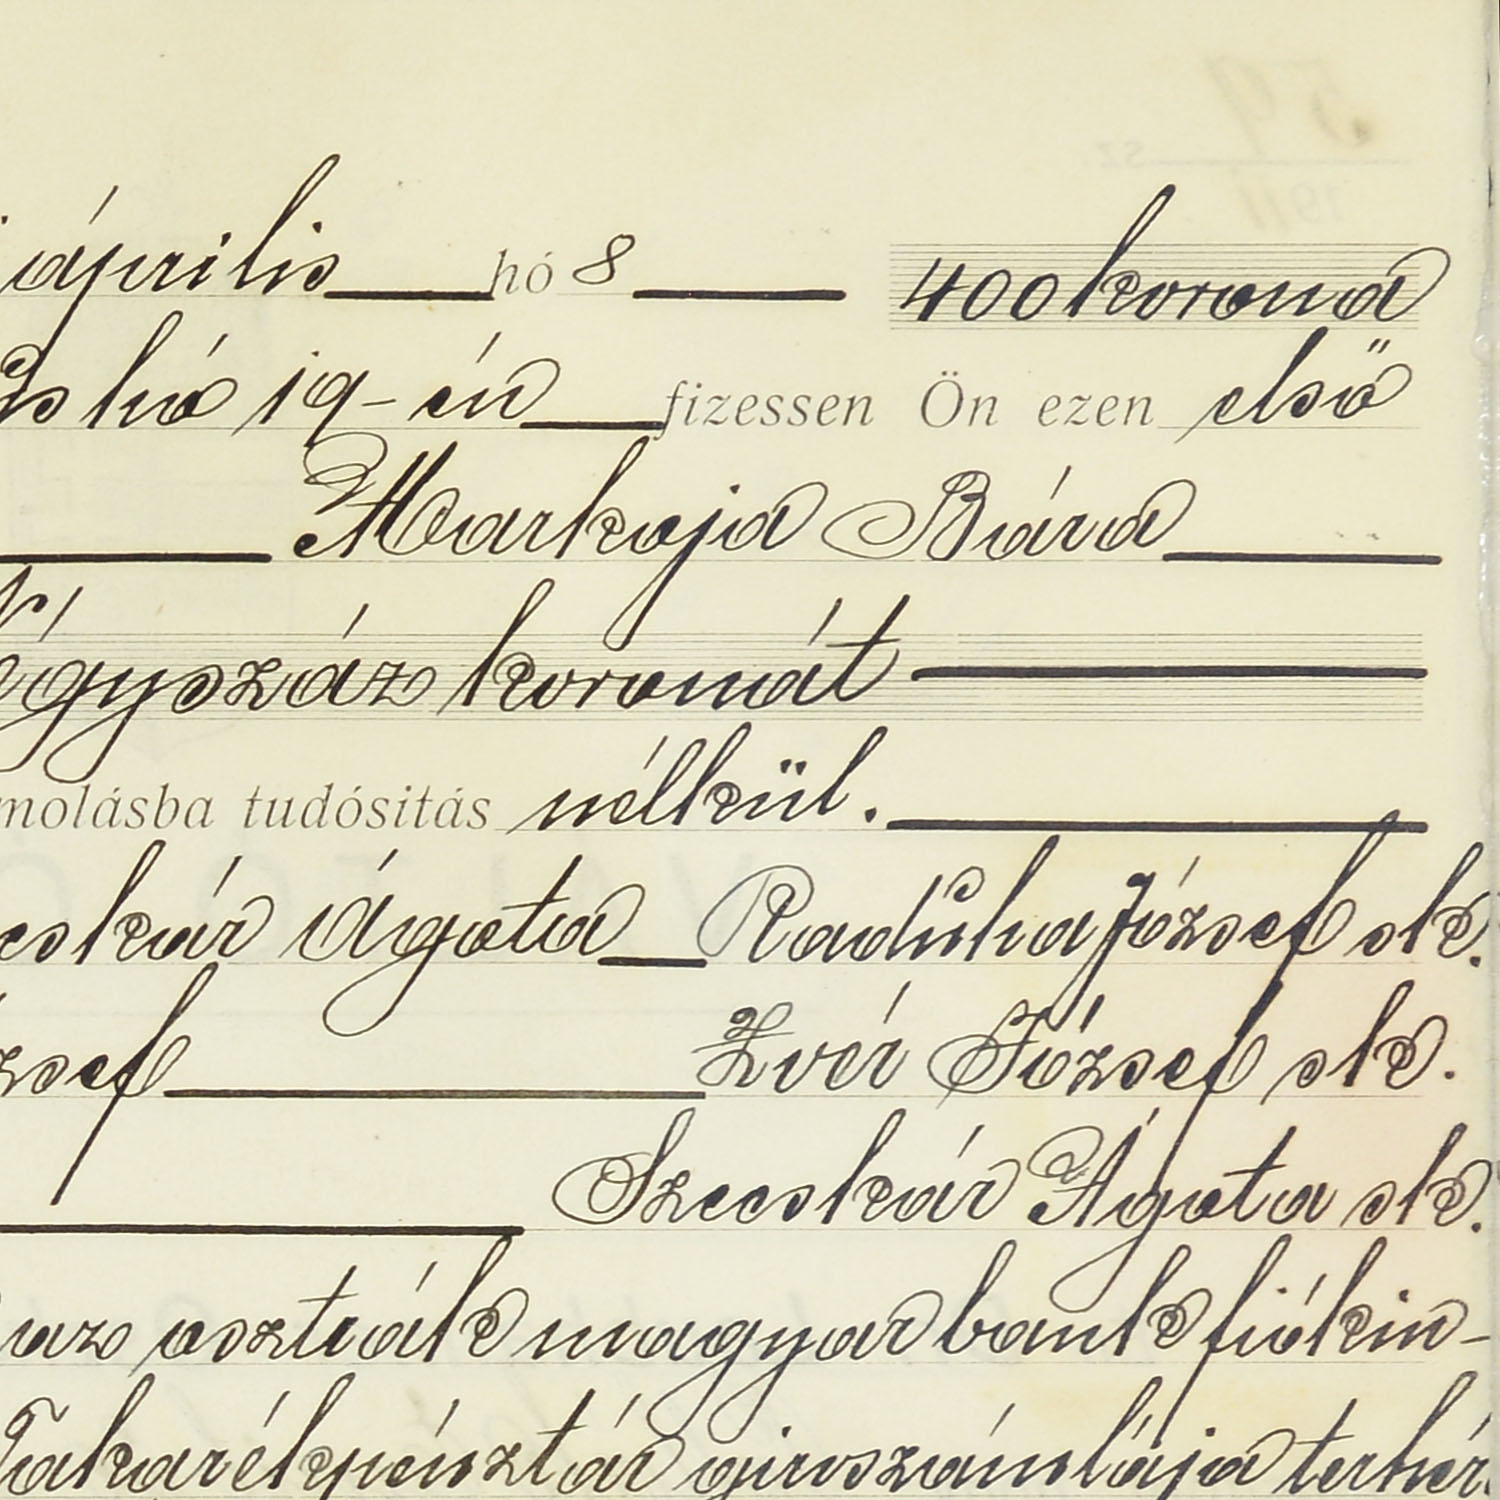 április hó 8 400 korona
hó 19-én fizessen Ön ezen első
Markoja Bára
négyszáz koronát
molásba tudósitás nélkül.
cskár Ágota Raduha József sk.
zsef Zvér József sk.
Szecskár Ágota sk.
az osztrák magyar bank fiókin-
Takarékpénztár giroszámlája terhér